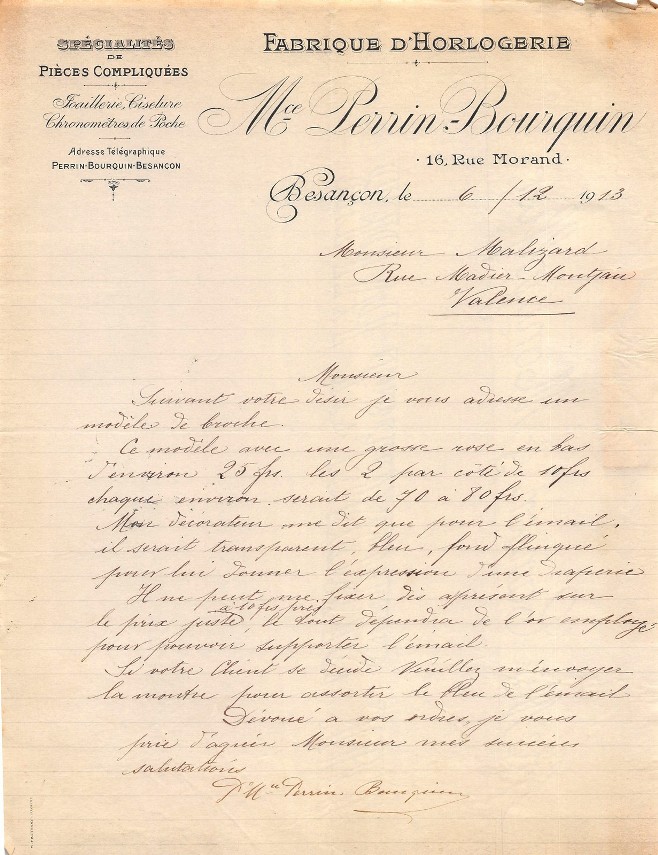 SPÉCIALITÉS
DE
PIÈCES COMPLIQUÉES
Joaillerie, Ciselure
Chronomètres de Poche
Adresse Télégraphique
PERRIN-BOURQUIN-BESANÇON
FABRIQUE D'HORLOGERIE
Mce Perrin-Bourquin
· 16, Rue Morand ·
Besançon, le 6 / 12 1913
Monsieur Malizard
Rue Madier-Montjau
Valence
Monsieur
Suivant votre désir je vous adresse un
modèle de broche.
Ce modèle avec une grosse rose en bas
d'environ 25 frs. les 2 par côté de 10 frs
chaque environ serait de 70 à 80 frs.
Mon décorateur me dit que pour l'émail,
il serait transparent, bleu, fond flinqué
pour lui donner l'expression d'une draperie
Il ne peut me fixer dès apresent sur
à 10 frs près
le prix juste le tout dépendra de l'or employé
pour pouvoir supporter l'émail.
Si votre Client se décide Veuillez m'envoyer
la montre pour assortir le bleu de l'émail
Dévoué a vos ordres, je vous
prie d'agréer Monsieur mes sincères
salutations
Perrin-Bourquin